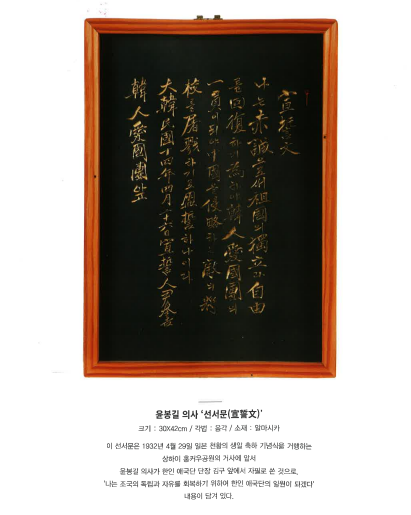 宣誓文
나는 赤誠으로써 祖國의 獨立과 自由
를 回復하기 爲하야 韓人愛國團의
一員이 되야 中國을 侵略하는 敵의 將
校를 屠戮하기로 盟誓하나이다
大韓民國十四年四月二十六日 宣誓人 尹奉吉
韓人愛國團앞
윤봉길 의사 ‘선서문(宣誓文)’
크기 : 30X42cm / 각법 : 음각 / 소재 : 말마시카
이 선서문은 1932년 4월 29일 일본 천황의 생일 축하 기념식을 거행하는
상하이 홍커우공원의 거사에 앞서
윤봉길 의사가 한인 애국단 단장 김구 앞에서 자필로 쓴 것으로,
'나는 조국의 독립과 자유를 회복하기 위하여 한인 애국단의 일원이 되겠다'
내용이 담겨 있다.